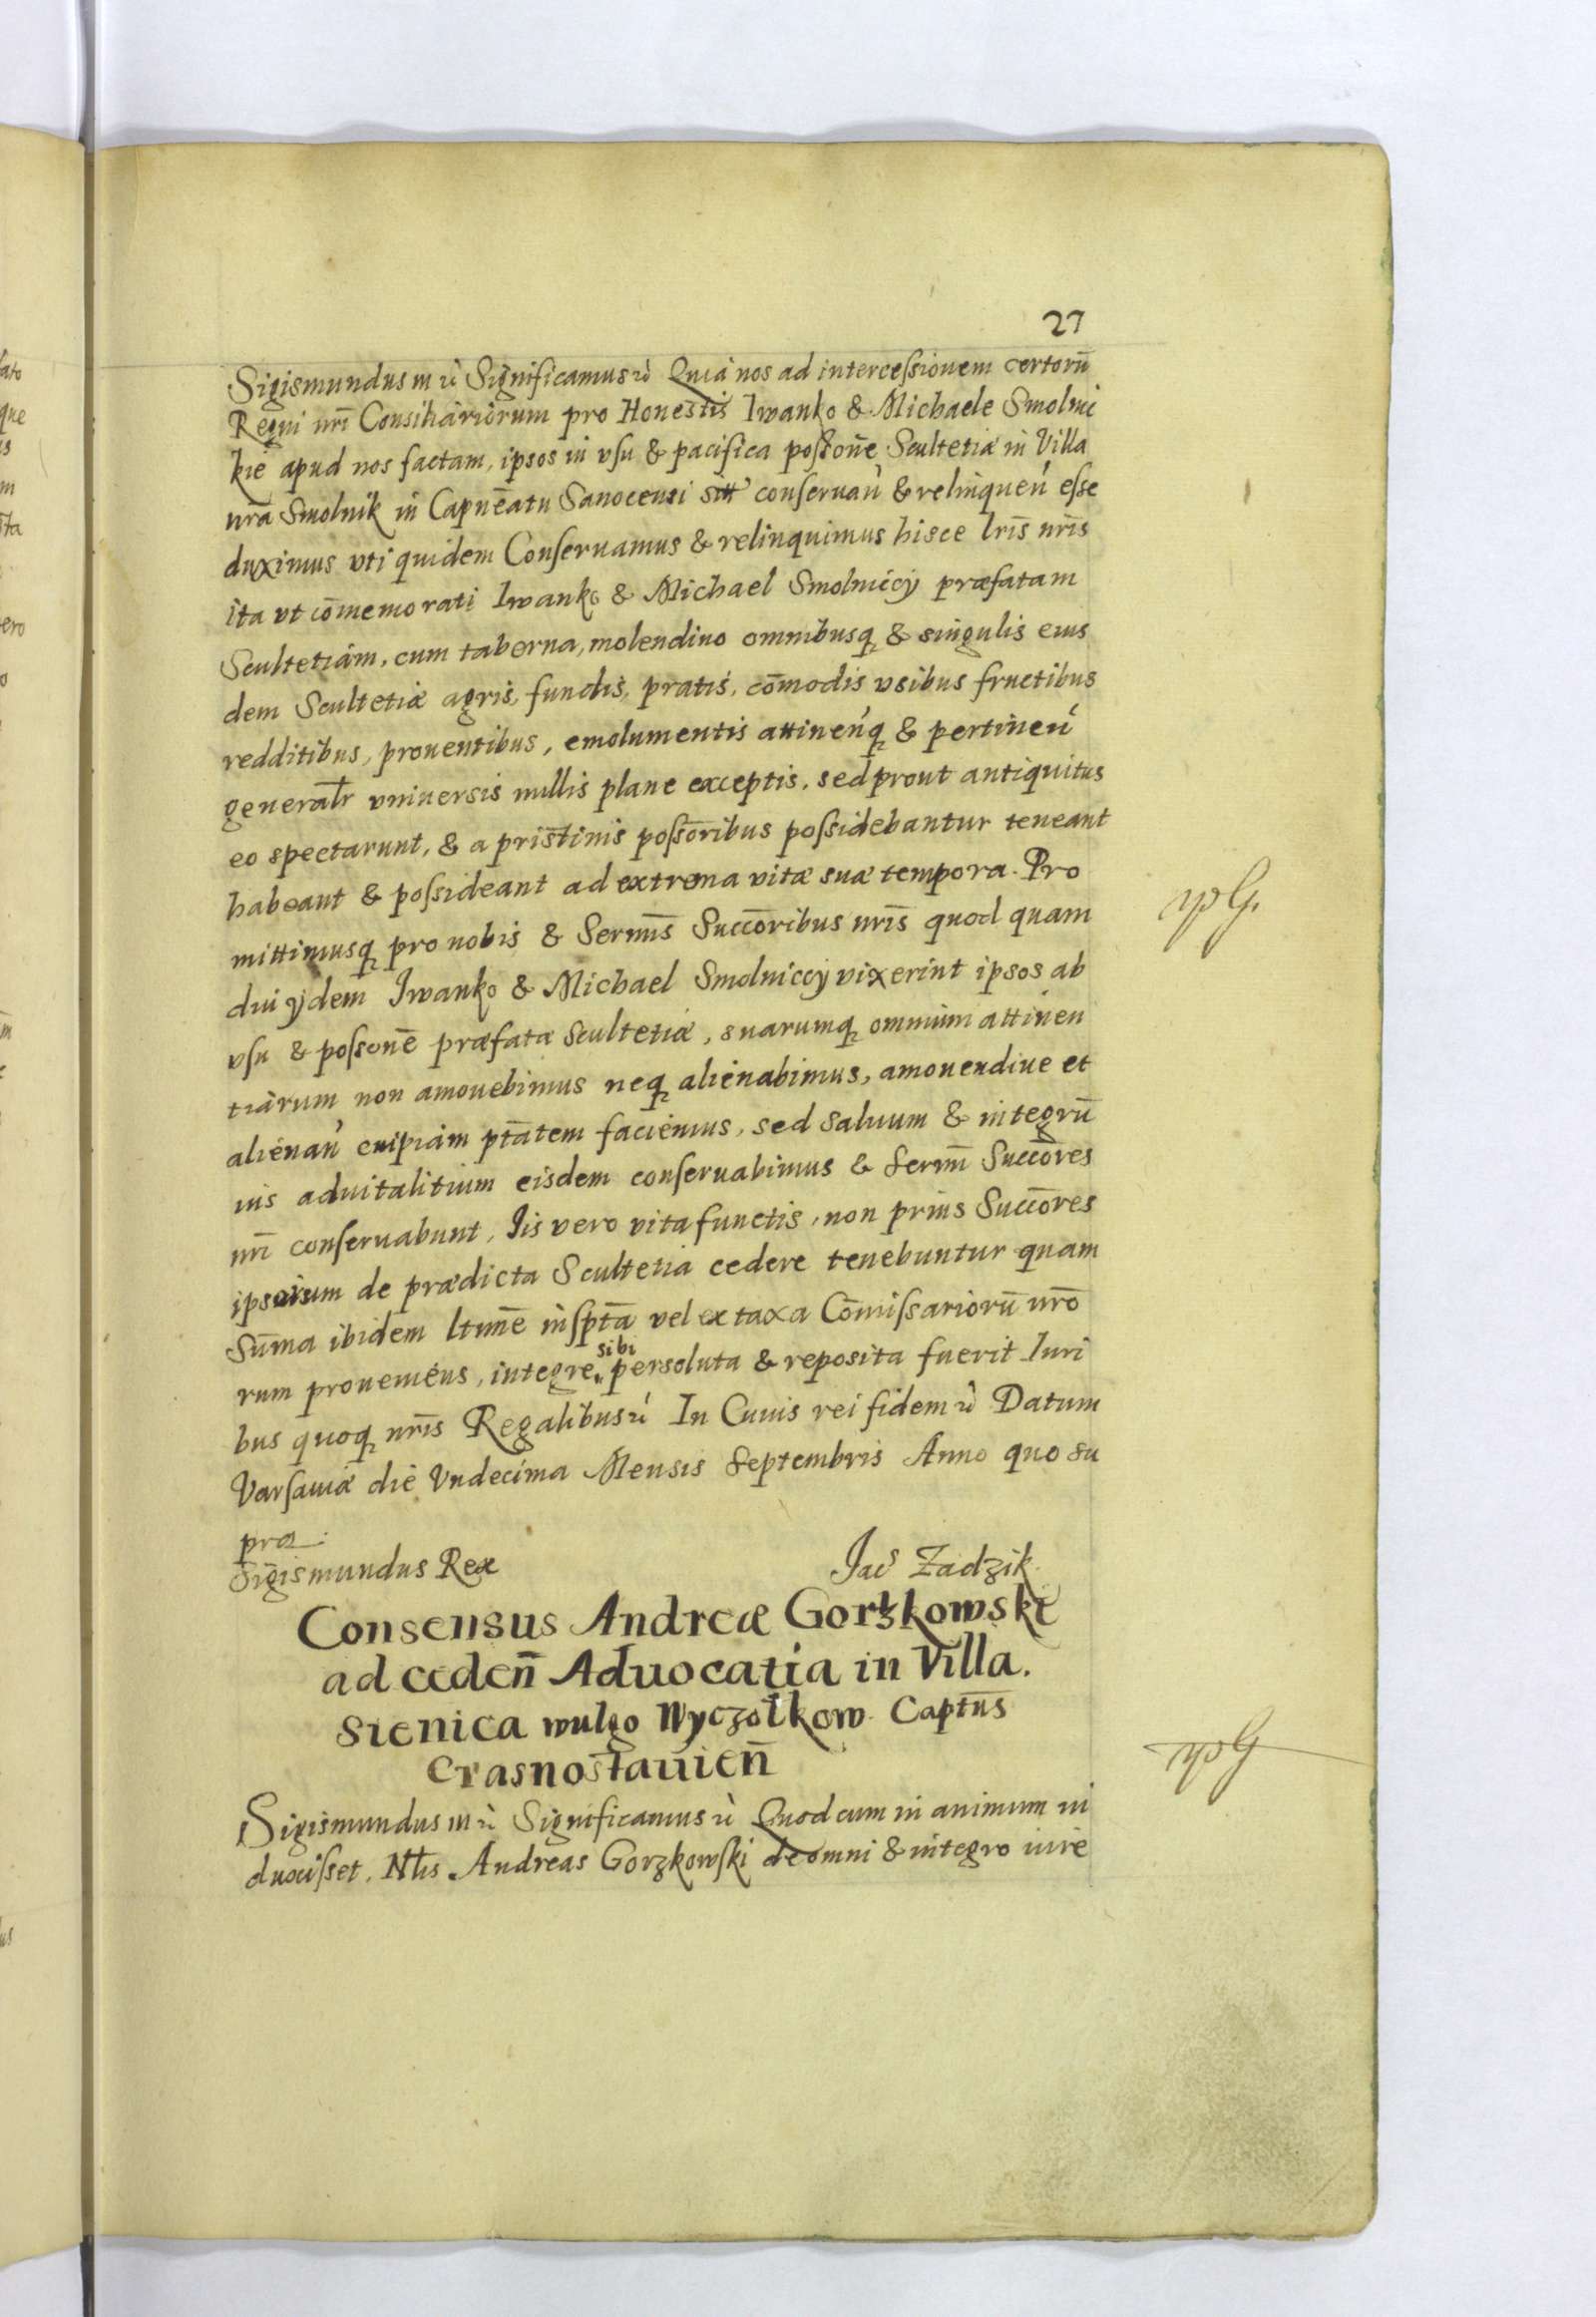 27
Sigismundus III &c Significamus &c Quia nos ad intercessionem certorũ
Regni nr̃i Consiliariorum pro Honestis Iwanko & Michaele Smolnic
kie apud nos factam, ipsos in vsu & pacifica possone Scultetiæ in Villa
nr̃a Smolnik in Capnẽatu Sanocensi conseruan̄ & relinquen̄ esse
duximus vti quidem Conseruamus & relinquimus hisce lr̃is nr̃is
ita vt cõmemorati Iwanko & Michael Smolniccy præfatam
Scultetiam, cum taberna, molendino omnibusq̧ & singulis eius
dem Scultetiæ agris, fundis, pratis, cõmodis vsibus fructibus
redditibus, prouentibus, emolumentis attinen̄q̧ & pertinen̄
generalr̃ vniuersis nullis plane exceptis, sed prout antiquitus
eo spectarunt, & a pristinis possõribus possidebantur teneant
habeant & possideant ad extrema vitæ suæ tempora. Pro
mittimusq̧ pro nobis & Sermis̃ Succõribus nr̃is quod quam
diu ijdem Iwanko & Michael Smolniccy vixerint ipsos ab
vsu & possonẽ præfatæ Scultetiæ, suarumq̧ omnium attinen
tiarum non amouebimus neq̧ alienabimus, amouendiue et
alienan̄ cuipiam ptãtem faciemus, sed saluum & integrũ
ius aduitalitium eisdem conseruabimus & sermĩ Succõres
nr̃i conseruabunt, Iis vero vita functis, non prius Succõres
ipsorum de prædicta Scultetia cedere tenebuntur quam
Sum̃a ibidem ltimẽ insptã vel ex taxa Cõmissariorũ nr̃o
rum proueniens, integre sibi persoluta & reposita fuerit Iuri
bus quoq̧ nr̃is Regalibus &c In Cuius rei fidem &c Datum
Varsauiæ die Vndecima Mensis Septembris Anno quo su
pra
Sigismundus Rex
Jac̃ Zadzik
Consensus Andreæ Gorzkowski
ad ceden̄ Aduocatia in Villa.
Sienica wulgo Wyczołkow Captus̃
Crasnostauien̄
Sigismundus III &c Significamus &c Quod cum in animum in
duxisset, Nlis̃ Andreas Gorzkowski de omni & integro iure